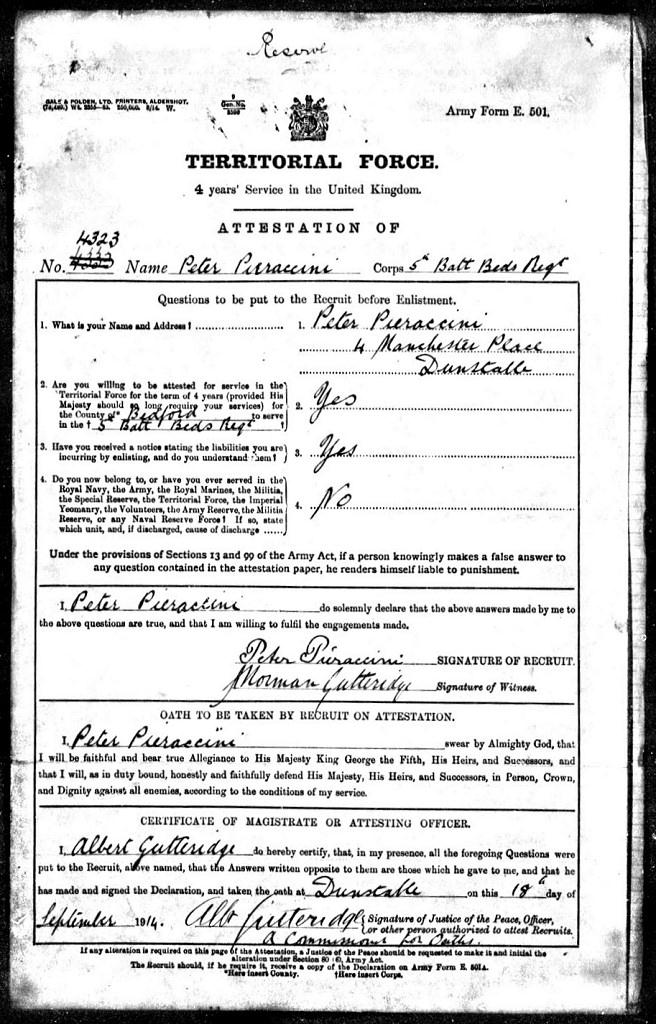 Reserve
GALE & POLDEN, LTD. PRINTERS, ALDERSHOT.
9
Gen. No.
Army Form E. 501.
TERRITORIAL FORCE.
4 years' Service in the United Kingdom.
ATTESTATION OF
4323
No. Name Peter Pieraccini Corps 5th Batt Beds Regt
Questions to be put to the Recruit before Enlistment.
1. What is your Name and Address? 1. Peter Pieraccini
4 Manchester Place
Dunstable
2. Are you willing to be attested for service in the
Territorial Force for the term of 4 years (provided His
Majesty should so long require your services) for
the County of* Bedford to serve
in the † 5th Batt Beds Regt †
2. Yes
3. Have you received a notice stating the liabilities you are
incurring by enlisting, and do you understand them?
3. Yes
4. Do you now belong to, or have you ever served in the
Royal Navy, the Army, the Royal Marines, the Militia,
the Special Reserve, the Territorial Force, the Imperial
Yeomanry, the Volunteers, the Army Reserve, the Militia
Reserve, or any Naval Reserve Force? If so, state
which unit, and, if discharged, cause of discharge ......
4. No
Under the provisions of Sections 13 and 99 of the Army Act, if a person knowingly makes a false answer to
any question contained in the attestation paper, he renders himself liable to punishment.
I, Peter Pieraccini do solemnly declare that the above answers made by me to
the above questions are true, and that I am willing to fulfil the engagements made.
Peter Pieraccini SIGNATURE OF RECRUIT.
Norman Gutteridge Signature of Witness.
OATH TO BE TAKEN BY RECRUIT ON ATTESTATION.
I, Peter Pieraccini swear by Almighty God, that
I will be faithful and bear true Allegiance to His Majesty King George the Fifth, His Heirs, and Successors, and
that I will, as in duty bound, honestly and faithfully defend His Majesty, His Heirs, and Successors, in Person, Crown,
and Dignity against all enemies, according to the conditions of my service.
CERTIFICATE OF MAGISTRATE OR ATTESTING OFFICER.
I, Albert Gutteridge do hereby certify, that, in my presence, all the foregoing Questions were
put to the Recruit, above named, that the Answers written opposite to them are those which he gave to me, and that he
has made and signed the Declaration, and taken the oath at Dunstable on this 18th day of
September 1914. Alb Gutteridge Signature of Justice of the Peace, Officer,
or other person authorized to attest Recruits.
A Commissioner for Oaths.
If any alteration is required on this page of the Attestation, a Justice of the Peace should be requested to make it and initial the
alteration under Section 80 (6), Army Act.
The Recruit should, if he require it, receive a copy of the Declaration on Army Form E. 501A.
*Here insert County. †Here insert Corps.